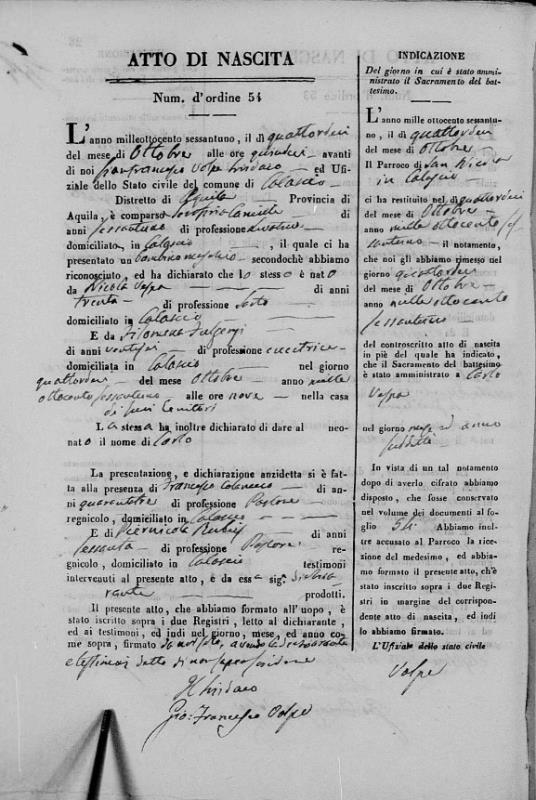 ATTO DI NASCITA
Num. d'ordine 54
L'anno milleottocento sessantuno, il dì quattordici
del mese di Ottobre alle ore quindici avanti
di noi Gianfrancesco Volpe Sindaco ed Uffi-
ziale dello Stato civile del comune di Calascio
Distretto di Aquila Provincia di
Aquila, è comparso di
anni sessantuno di professione
domiciliato in Calascio, il quale ci ha
presentato un bambino maschio secondochè abbiamo
riconosciuto, ed ha dichiarato che lo stesso è nato
da Nicola Vespa di anni
trenta di professione Sarto
domiciliato in Calascio
E da Filomena Fulgenzi
di anni ventisei di professione cucitrice
domiciliata in Calascio nel giorno
quattordici del mese Ottobre anno mille
ottocento sessantuno alle ore nove nella casa
di suoi Genitori
La stessa ha inoltre dichiarato di dare al neo-
nato il nome di Carlo
La presentazione, e dichiarazione anzidetta si è fat-
ta alla presenza di Francesco di an-
ni quarantatre di professione Pastore
regnicolo, domiciliato in Calascio
E di Piernicola di anni
sessanta di professione Pastore re-
gnicolo, domiciliato in Calascio testimoni
intervenuti al presente atto, e da essa sig.
prodotti.
Il presente atto, che abbiamo formato all'uopo, è
stato iscritto sopra i due Registri, letto al dichiarante,
ed ai testimoni, ed indi nel giorno, mese, ed anno co-
me sopra, firmato da noi solo, avendo la dichiarante
e testimoni detto di non sapere scrivere
Il Sindaco
Gio: Francesco Volpe
INDICAZIONE
Del giorno in cui è stato ammi-
nistrato il Sacramento del bat-
tesimo.
L'anno mille ottocento sessantu-
no, il dì quattordici
del mese di Ottobre
Il Parroco di San Nicola
in Calascio
ci ha restituito nel dì quattordici
del mese di Ottobre
anno mille ottocento ses
santuno il notamento,
che noi gli abbiamo rimesso nel
giorno quattordici
del mese di Ottobre
anno mille ottocento
sessantuno
del controscritto atto di nascita
in piè del quale ha indicato,
che il Sacramento del battesimo
è stato amministrato a Carlo
Vespa
nel giorno mese ed anno
suddetti
In vista di un tal notamento
dopo di averlo cifrato abbiamo
disposto, che fosse conservato
nel volume dei documenti al fo-
glio 54. Abbiamo inol-
tre accusato al Parroco la rice-
zione del medesimo, ed abbia-
mo formato il presente atto, ch'è
stato inscritto sopra i due Regi-
stri in margine del corrispon-
dente atto di nascita, ed indi
lo abbiamo firmato.
L'Uffiziale dello stato civile
Volpe